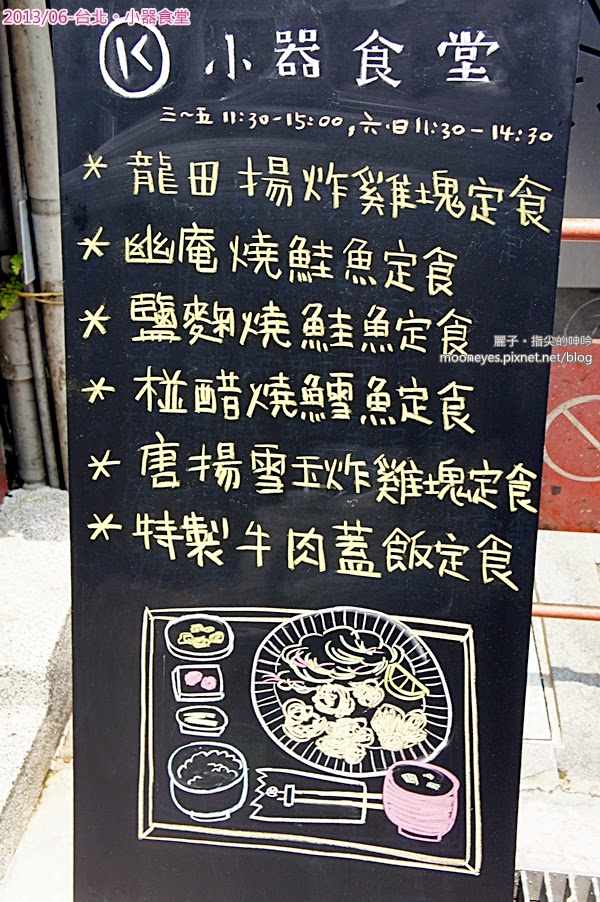 2013/06-台北・小器食堂
K 小器食堂
三~五 11:30-15:00,六・日 11:30-14:30
* 龍田揚炸雞塊定食
* 幽庵燒鮭魚定食
* 鹽麴燒鮭魚定食
麗子・指尖的呻吟
mooneyes.pixnet.net/blog
* 椪醋燒鱈魚定食
* 唐揚雪玉炸雞塊定食
* 特製牛肉蓋飯定食